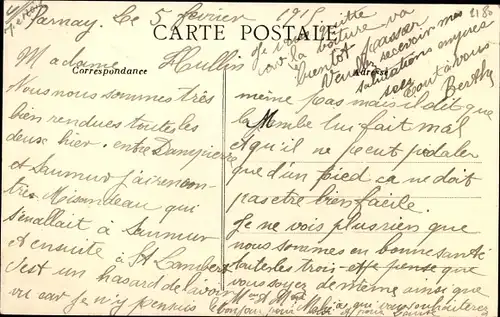 Parnay, Le 5 février 1915
CARTE POSTALE
Correspondance
Adresse
Madame Hullin
Nous nous sommes très
bien rendues toutes les
deux hier. entre Dampierre
et Saumur j'ai rencon-
tré Misandeau qui
s'en allait à Saumur
et ensuite à St Lambert
c'est un hasard de l'avoir
vu car je n'y pensais
même pas mais il dit que
la jambe lui fait mal
et qu'il ne peut pédaler
que d'un pied ca ne doit
pas être bien facile.
Je ne vois plus rien que
nous sommes en bonne santé
toutes les trois et je pense que
vous soyez de même ainsi que
Je vous quitte
car la voiture va
bientôt passer
recevoir mes
salutations
tout à vous
Berthe